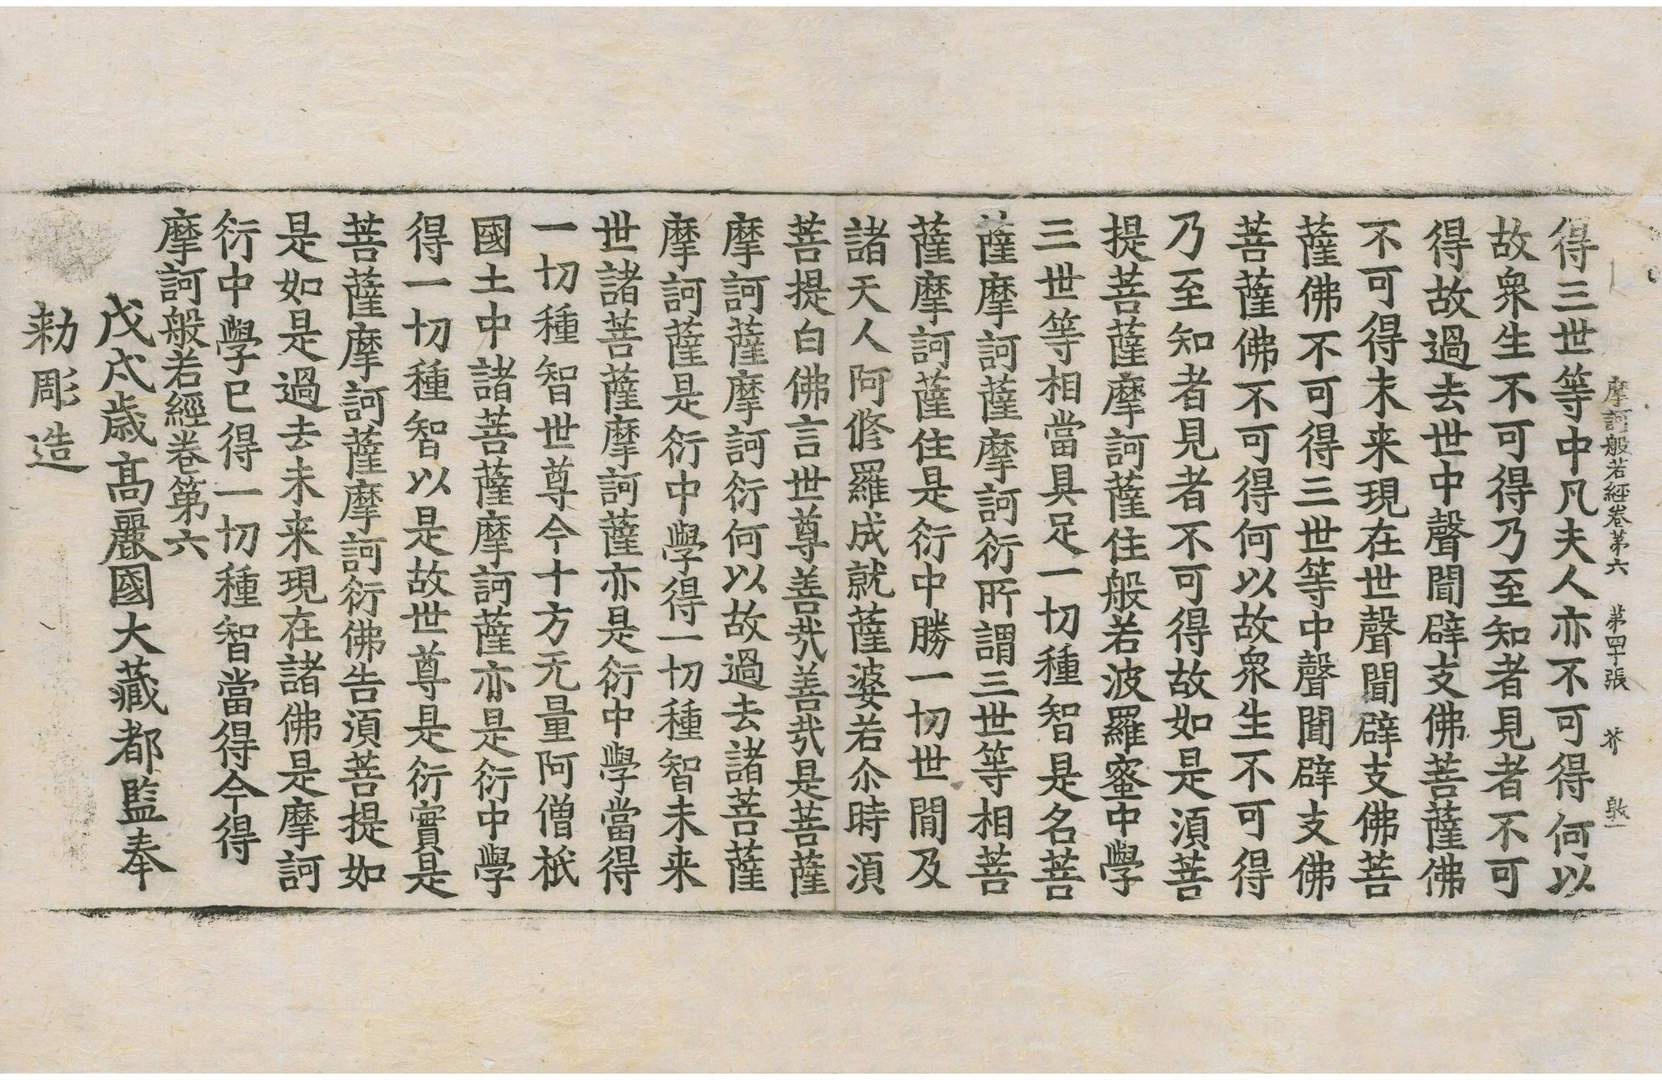 摩訶般若經卷第六　第四十張　芥　敦一
得三世等中凡夫人亦不可得何以
故衆生不可得乃至知者見者不可
得故過去世中聲聞辟支佛菩薩佛
不可得未来現在世聲聞辟支佛菩
薩佛不可得三世等中聲聞辟支佛
菩薩佛不可得何以故衆生不可得
乃至知者見者不可得故如是湏菩
提菩薩摩訶薩住般若波羅蜜中學
三世等相當具足一切種智是名菩
薩摩訶薩摩訶衍所謂三世等相菩
薩摩訶薩住是衍中勝一切世間及
諸天人阿修羅成就薩婆若尒時湏
菩提白佛言世尊善㢤善㢤是菩薩
摩訶薩摩訶衍何以故過去諸菩薩
摩訶薩是衍中學得一切種智未来
世諸菩薩摩訶薩亦是衍中學當得
一切種智世尊今十方无量阿僧祇
國土中諸菩薩摩訶薩亦是衍中學
得一切種智以是故世尊是衍實是
菩薩摩訶薩摩訶衍佛告湏菩提如
是如是過去未来現在諸佛是摩訶
衍中學已得一切種智當得今得
摩訶般若經卷第六
戊戌歲髙麗國大藏都監奉
勑彫造